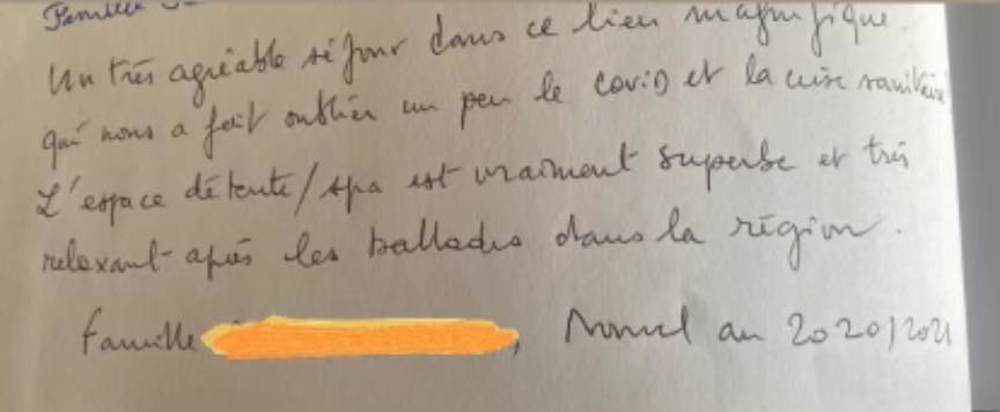 Famille
Un très agréable séjour dans ce lieu magnifique.
qui nous a fait oublier un peu le covid et la crise sanitaire
L'espace détente/spa est vraiment superbe et très
relaxant après les ballades dans la région.
famille , Nouvel an 2020/2021